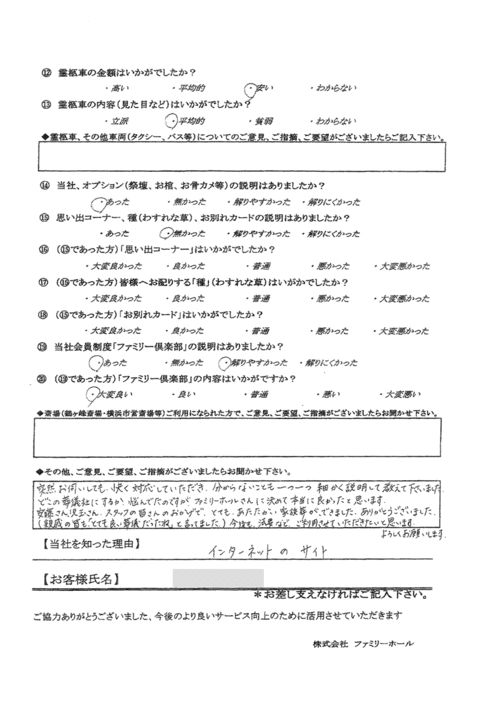 ⑫ 霊柩車の金額はいかがでしたか？
・高い ・平均的 ・安い ・わからない
⑬ 霊柩車の内容（見た目など）はいかがでしたか？
・立派 ・平均的 ・貧弱 ・わからない
◆霊柩車、その他車両（タクシー、バス等）についてのご意見、ご指摘、ご要望がございましたらご記入下さい。
⑭ 当社、オプション（祭壇、お棺、お骨カメ等）の説明はありましたか？
・あった ・無かった ・解りやすかった ・解りにくかった
⑮ 思い出コーナー、種（わすれな草）、お別れカードの説明はありましたか？
・あった ・無かった ・解りやすかった ・解りにくかった
⑯ （⑮であった方）「思い出コーナー」はいかがでしたか？
・大変良かった ・良かった ・普通 ・悪かった ・大変悪かった
⑰ （⑮であった方）皆様へお配りする「種」（わすれな草）はいかがでしたか？
・大変良かった ・良かった ・普通 ・悪かった ・大変悪かった
⑱ （⑮であった方）「お別れカード」はいかがでしたか？
・大変良かった ・良かった ・普通 ・悪かった ・大変悪かった
⑲ 当社会員制度「ファミリー倶楽部」の説明はありましたか？
・あった ・無かった ・解りやすかった ・解りにくかった
⑳ （⑲であった方）「ファミリー倶楽部」の内容はいかがですか？
・大変良い ・良い ・普通 ・悪い ・大変悪い
◆斎場（鶴ヶ峰斎場・横浜市営斎場等）ご利用になられた方で、ご意見、ご要望、ご指摘がございましたらお聞かせ下さい。
◆その他、ご意見、ご要望、ご指摘がございましたらお聞かせ下さい。
突然お伺いしても、快く対応していただき、分からないことも一つ一つ細かく説明して教えて下さいました
どこの葬儀社にするか悩んでたのですがファミリーホールさんに決めて本当に良かったと思います。
安藤さん、児玉さん、スタッフの皆さんのおかげで、とても、あたたかい家族葬ができました。ありがとうございました。
（親戚の皆も「とても良い葬儀だったね」と言ってました）今後も、法要など、ご利用させていただきたいと思います。
よろしくお願いします。
【当社を知った理由】 インターネットのサイト
【お客様氏名】
＊お差し支えなければご記入下さい。
ご協力ありがとうございました、今後のより良いサービス向上のために活用させていただきます
株式会社 ファミリーホール